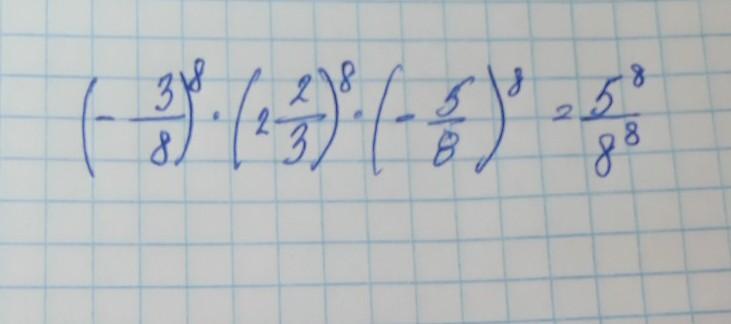 (-3/8)^8 · (2 2/3)^8 · (-5/8)^8 = 5^8/8^8